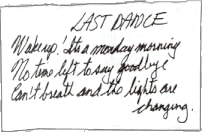 LAST DANCE
Wake up! It's a monday morning
No time left to say goodbye
Can't breath and the lights are
changing.